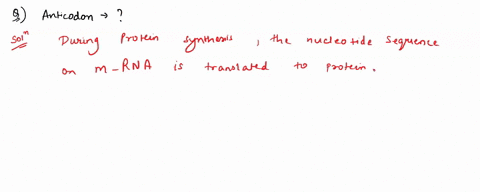 Q) Anticodon → ?
Solⁿ During Protein synthesis, the nucleotide sequence
on m-RNA is translated to protein.